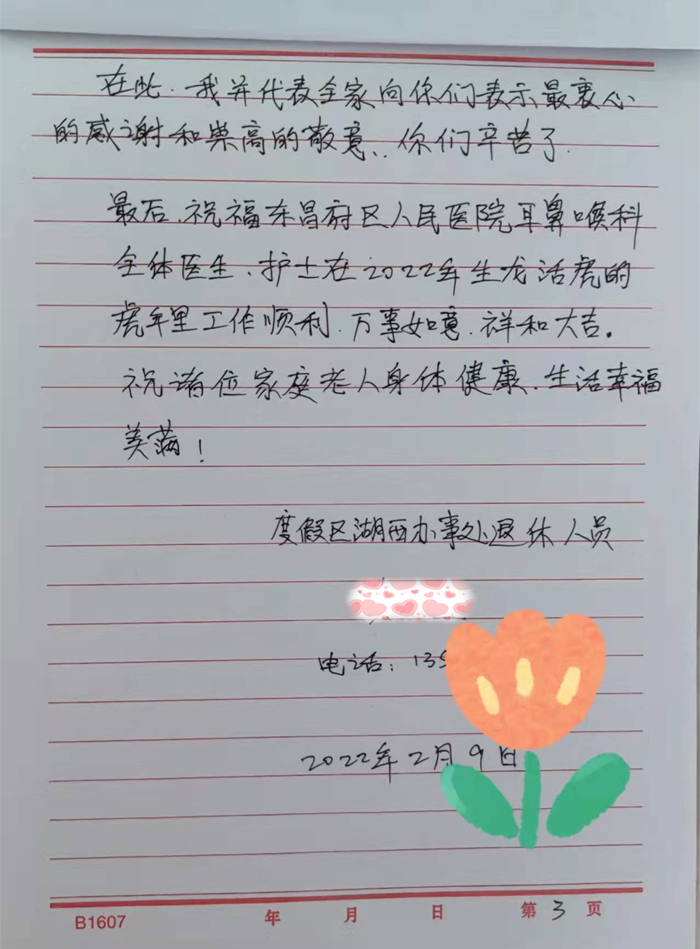 在此.我并代表全家向你们表示最衷心
的感谢和崇高的敬意.你们辛苦了.
最后.祝福东昌府区人民医院耳鼻喉科
全体医生、护士在2022年生龙活虎的
虎年里工作顺利.万事如意.祥和大吉。
祝诸位家庭老人身体健康.生活幸福
美满！
度假区湖西办事处退休人员
电话：135
2022年2月9日
B1607 年 月 日 第3页